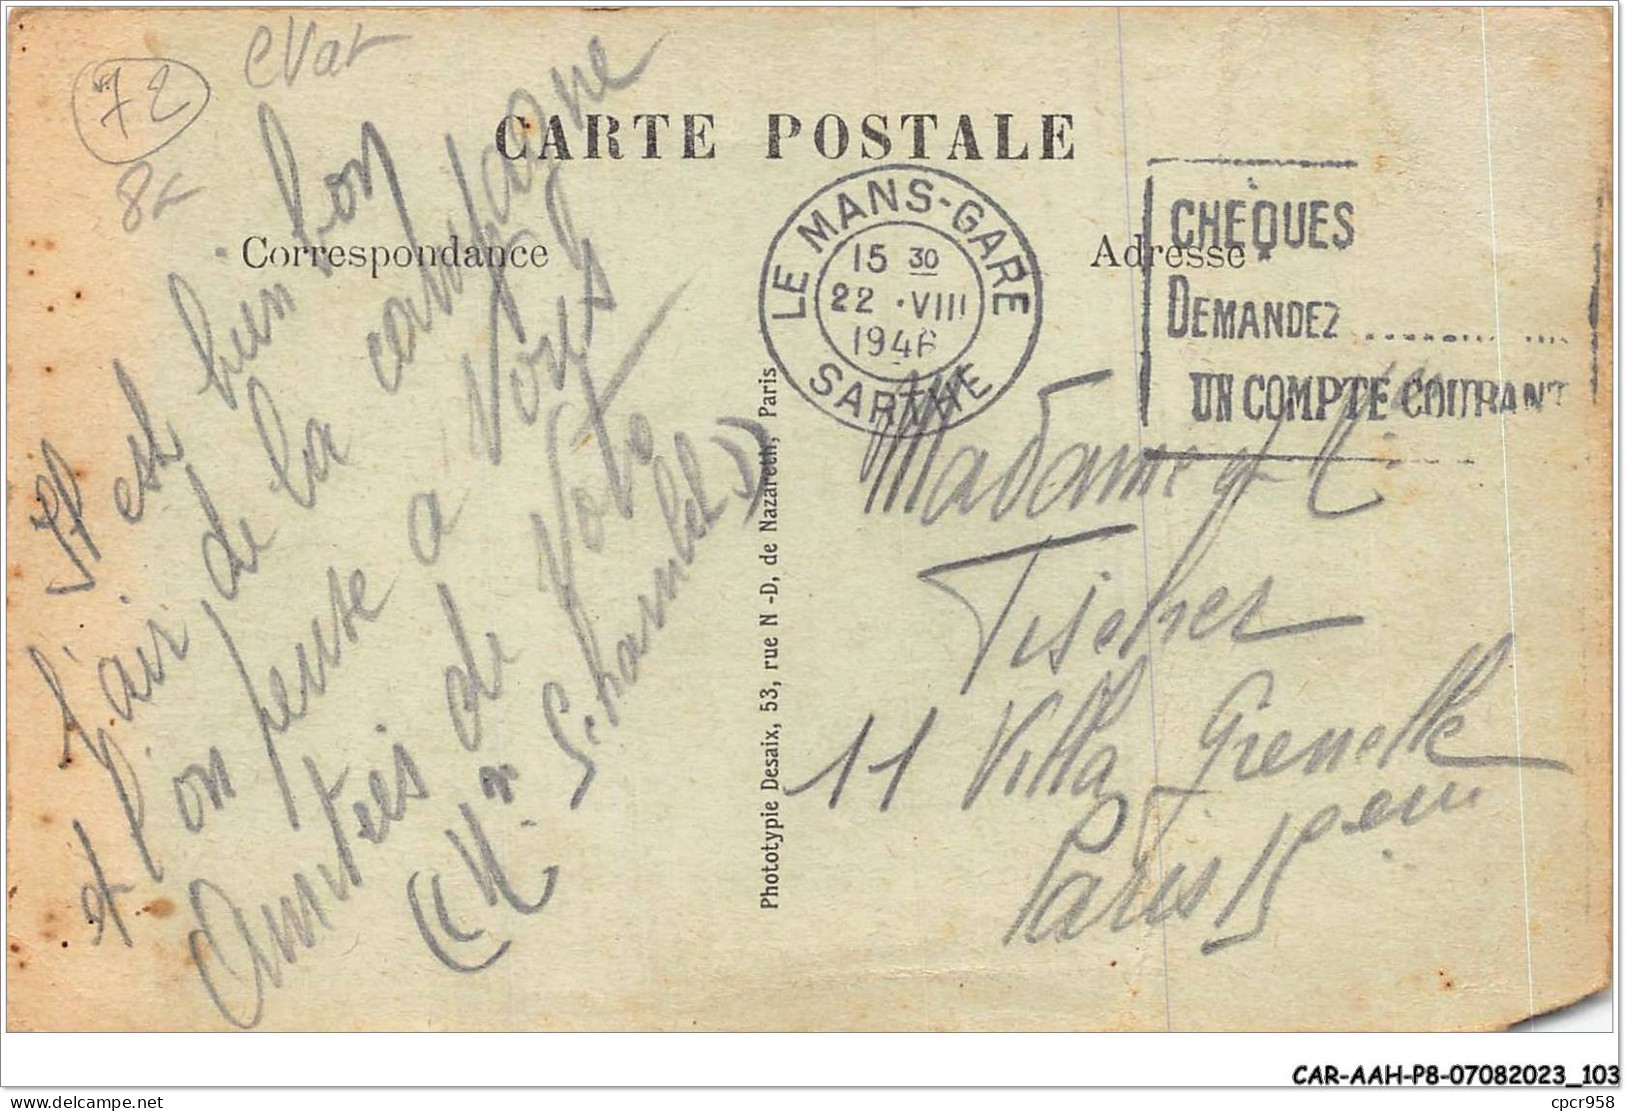 72
8€
CARTE POSTALE
Correspondance
Adresse
LE MANS-GARE
15 30
22 · VIII
1946
SARTHE
CHÈQUES
DEMANDEZ
UN COMPTE COURANT
Il est bien bon
l'air de la campagne
et l'on pense a Vous
Amitiés de Votre
((Mr Schambel))
Phototypie Desaix, 53, rue N -D, de Nazareth, Paris
Madame et
Tischer
11 Villa Grenelle
Paris 15eme
CAR-AAH-P8-07082023_103
delcampe.net
cpcr958